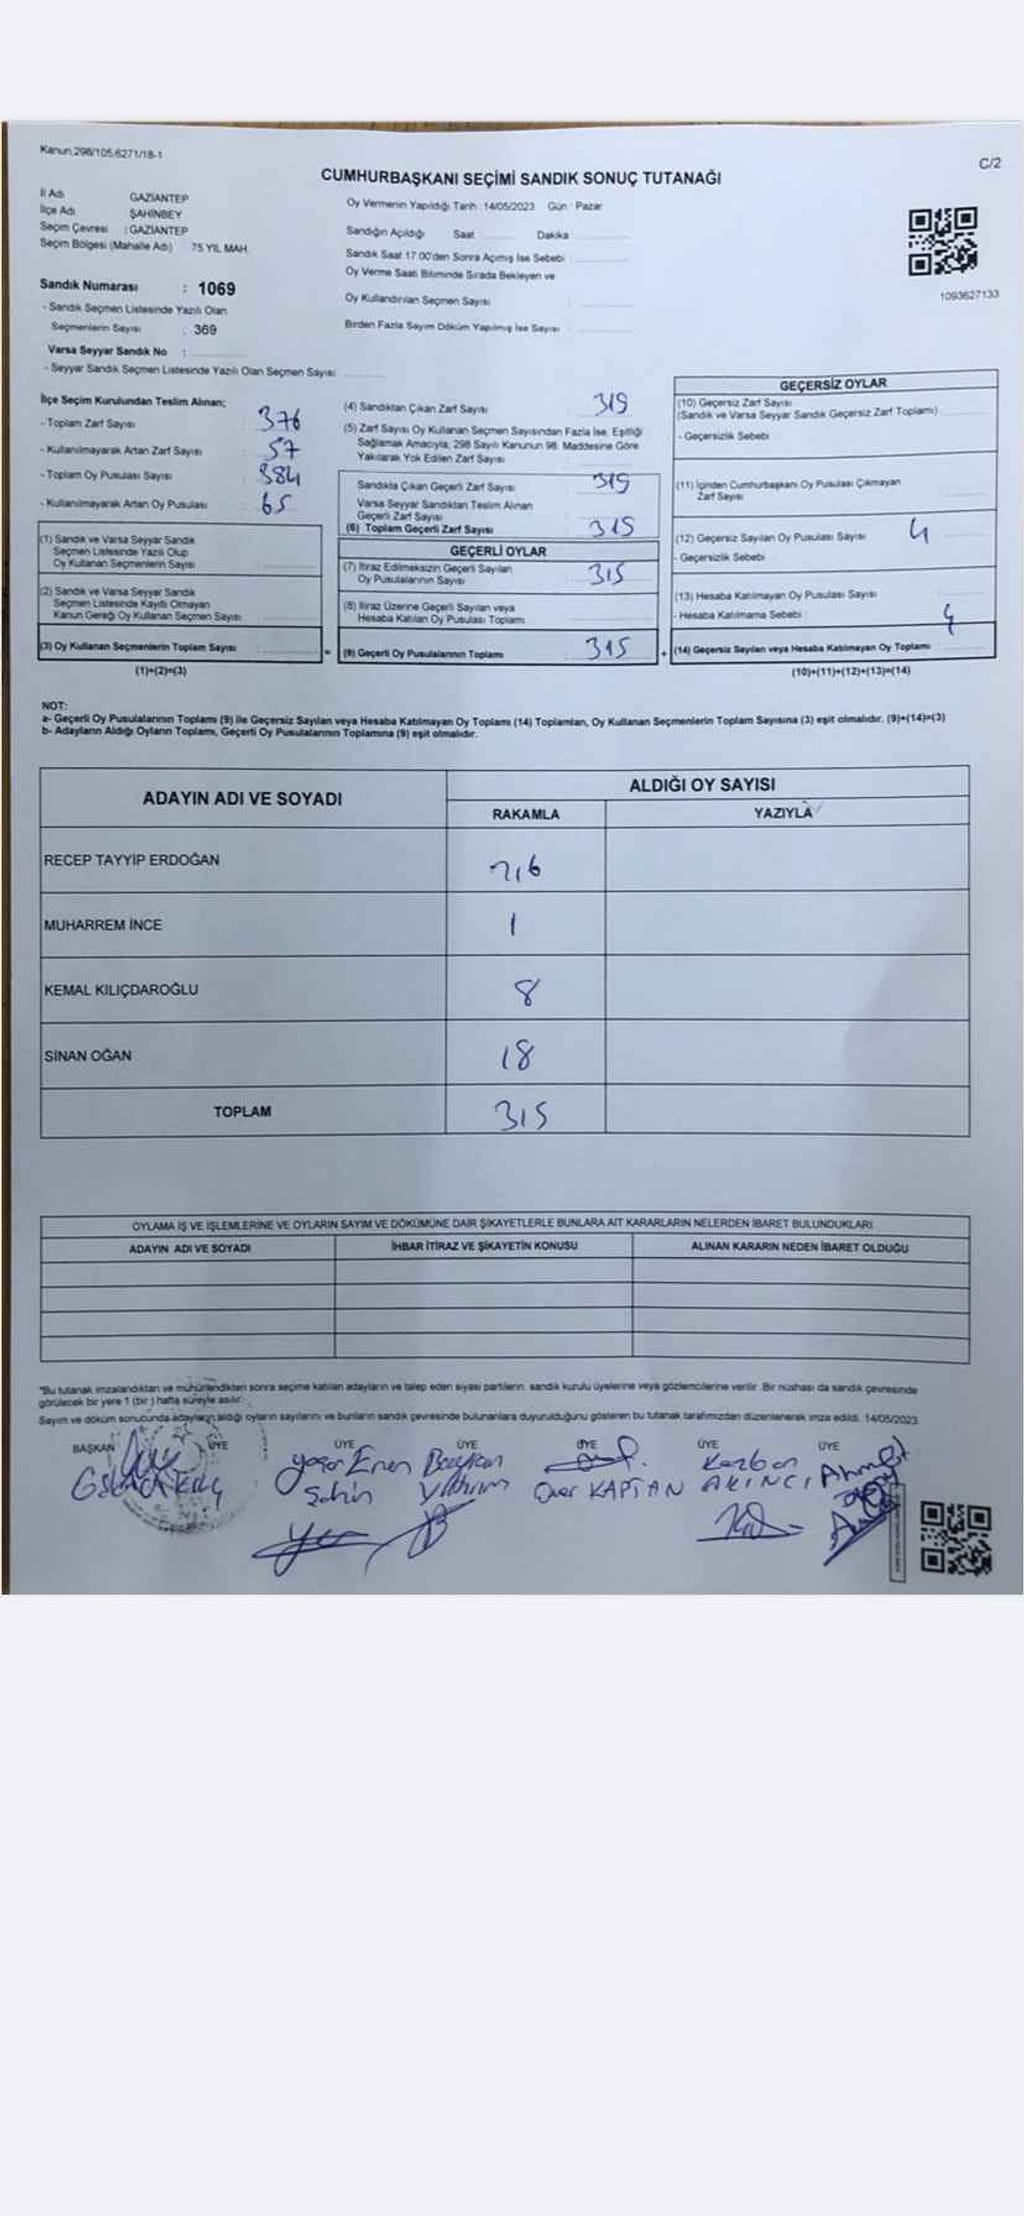 Kanun.298/105.6271/18-1
C/2
CUMHURBAŞKANI SEÇİMİ SANDIK SONUÇ TUTANAĞI
İl Adı : GAZİANTEP
İlçe Adı : ŞAHİNBEY
Seçim Çevresi : GAZİANTEP
Seçim Bölgesi (Mahalle Adı) 75 YIL MAH.
Oy Vermenin Yapıldığı Tarih : 14/05/2023 Gün : Pazar
Sandığın Açıldığı Saat Dakika
Sandık Saat 17.00'den Sonra Açımış İse Sebebi :
Oy Verme Saati Bitiminde Sırada Bekleyen ve
Oy Kullandırılan Seçmen Sayısı :
Birden Fazla Sayım Döküm Yapılmış İse Sayısı :
1093627133
Sandık Numarası : 1069
- Sandık Seçmen Listesinde Yazılı Olan
Seçmenlerin Sayısı : 369
Varsa Seyyar Sandık No :
- Seyyar Sandık Seçmen Listesinde Yazılı Olan Seçmen Sayısı:
İlçe Seçim Kurulundan Teslim Alınan;
- Toplam Zarf Sayısı 376
- Kullanılmayarak Artan Zarf Sayısı 57
- Toplam Oy Pusulası Sayısı 384
- Kullanılmayarak Artan Oy Pusulası 65
(1) Sandık ve Varsa Seyyar Sandık
Seçmen Listesinde Yazılı Olup
Oy Kullanan Seçmenlerin Sayısı
(2) Sandık ve Varsa Seyyar Sandık
Seçmen Listesinde Kayıtlı Olmayan
Kanun Gereği Oy Kullanan Seçmen Sayısı
(3) Oy Kullanan Seçmenlerin Toplam Sayısı
(1)+(2)=(3)
(4) Sandıktan Çıkan Zarf Sayısı 319
(5) Zarf Sayısı Oy Kullanan Seçmen Sayısından Fazla İse, Eşitliği
Sağlamak Amacıyla; 298 Sayılı Kanunun 98. Maddesine Göre
Yakılarak Yok Edilen Zarf Sayısı
Sandıkta Çıkan Geçerli Zarf Sayısı 319
Varsa Seyyar Sandıktan Teslim Alınan
Geçerli Zarf Sayısı
(6) Toplam Geçerli Zarf Sayısı 315
GEÇERLİ OYLAR
(7) İtiraz Edilmeksizin Geçerli Sayılan
Oy Pusulalarının Sayısı 315
(8) İtiraz Üzerine Geçerli Sayılan veya
Hesaba Katılan Oy Pusulası Toplamı
= (9) Geçerli Oy Pusulalarının Toplamı 315 +
GEÇERSİZ OYLAR
(10) Geçersiz Zarf Sayısı
(Sandık ve Varsa Seyyar Sandık Geçersiz Zarf Toplamı)
- Geçersizlik Sebebi
(11) İçinden Cumhurbaşkanı Oy Pusulası Çıkmayan
Zarf Sayısı
(12) Geçersiz Sayılan Oy Pusulası Sayısı 4
- Geçersizlik Sebebi
(13) Hesaba Katılmayan Oy Pusulası Sayısı
- Hesaba Katılmama Sebebi
(14) Geçersiz Sayılan veya Hesaba Katılmayan Oy Toplamı 4
(10)+(11)+(12)+(13)=(14)
NOT:
a- Geçerli Oy Pusulalarının Toplamı (9) ile Geçersiz Sayılan veya Hesaba Katılmayan Oy Toplamı (14) Toplamları, Oy Kullanan Seçmenlerin Toplam Sayısına (3) eşit olmalıdır. (9)+(14)=(3)
b- Adayların Aldığı Oyların Toplamı, Geçerli Oy Pusulalarının Toplamına (9) eşit olmalıdır.
ADAYIN ADI VE SOYADI ALDIĞI OY SAYISI
RAKAMLA YAZIYLA
RECEP TAYYİP ERDOĞAN 216
MUHARREM İNCE 1
KEMAL KILIÇDAROĞLU 8
SİNAN OĞAN 18
TOPLAM 315
OYLAMA İŞ VE İŞLEMLERİNE VE OYLARIN SAYIM VE DÖKÜMÜNE DAİR ŞİKAYETLERLE BUNLARA AİT KARARLARIN NELERDEN İBARET BULUNDUKLARI
ADAYIN ADI VE SOYADI İHBAR İTİRAZ VE ŞİKAYETİN KONUSU ALINAN KARARIN NEDEN İBARET OLDUĞU
"Bu tutanak imzalandıktan ve mühürlendikten sonra seçime katılan adayların ve talep eden siyasi partilerin, sandık kurulu üyelerine veya gözlemcilerine verilir. Bir nüshası da sandık çevresinde
görülecek bir yere 1 (bir ) hafta süreyle asılır."
Sayım ve döküm sonucunda adayların aldığı oyların sayılarını ve bunların sandık çevresinde bulunanlara duyurulduğunu gösteren bu tutanak tarafımızdan düzenlenerek imza edildi. 14/05/2023
BAŞKAN ÜYE ÜYE ÜYE ÜYE ÜYE ÜYE
Yaşar Eren Baykan Kezban Ahmet
Şahin Yıldırım KAPTAN AKINCI